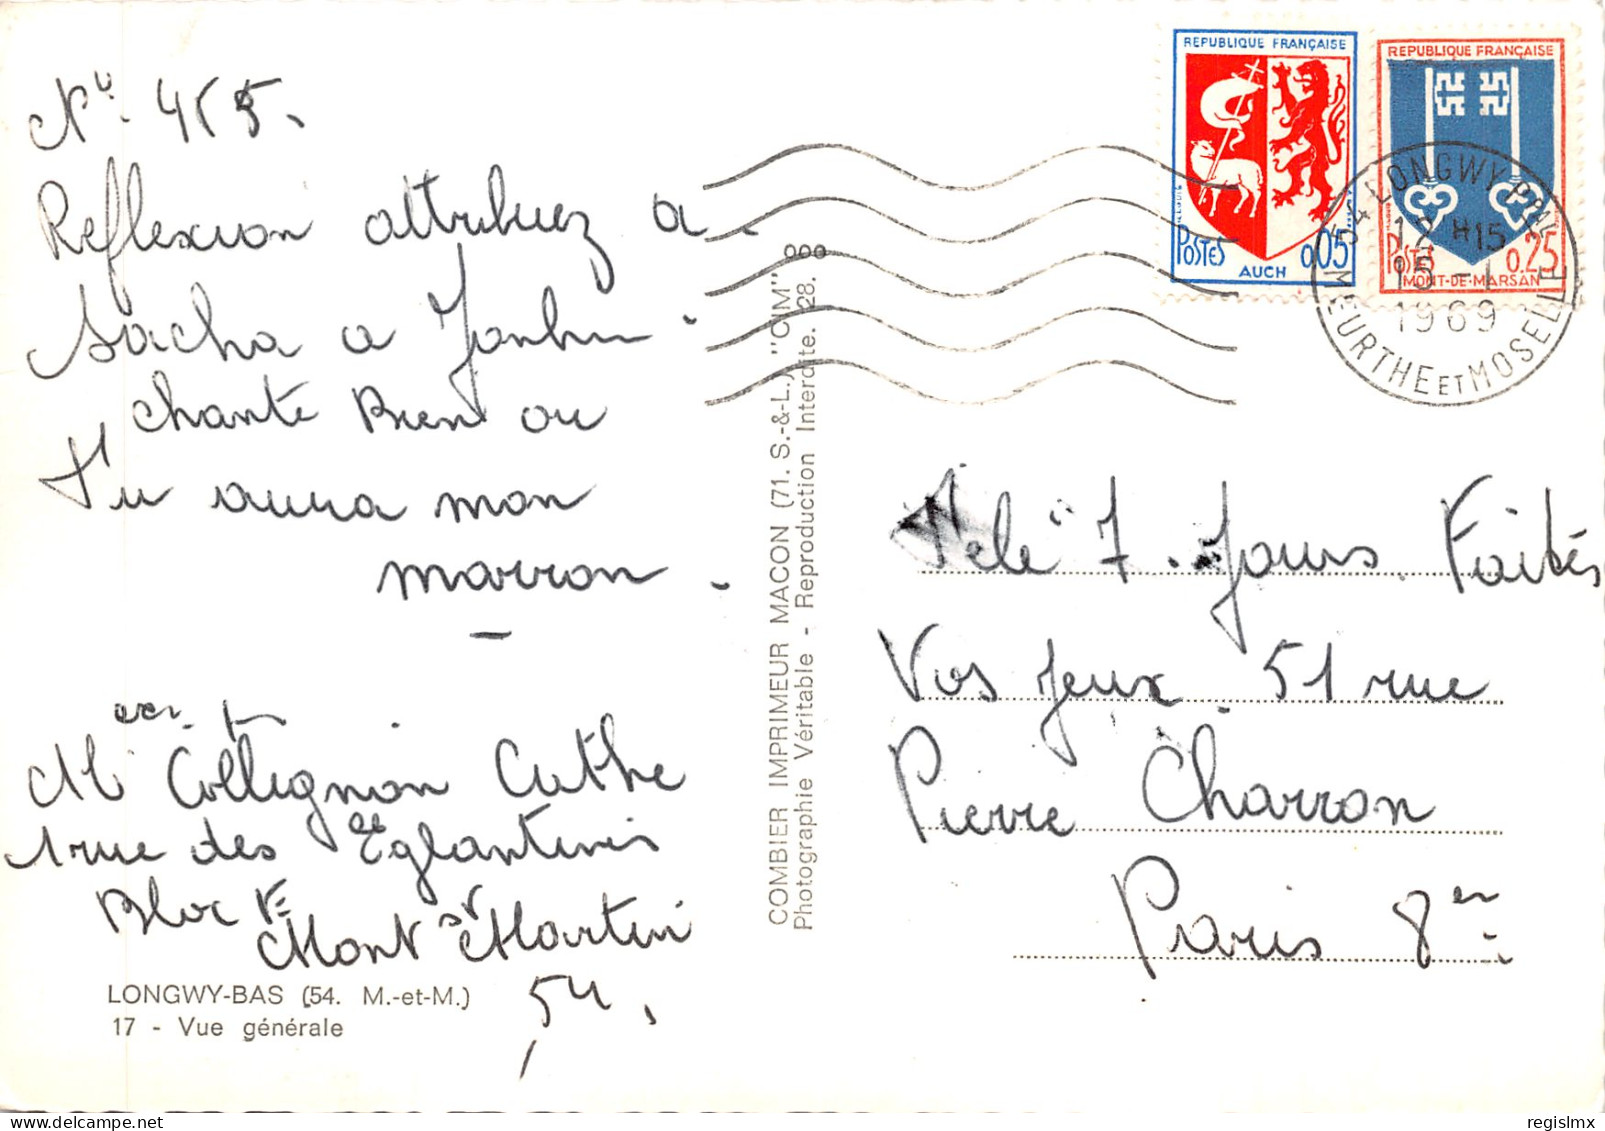 N° 455.
Reflexion attribuez a
Sacha a
chante Bien ou
Tu aura mon
marron.
Mlle Collignon Cathe
1 rue des Eglantines
Bloc
Mont St Martin
54.
LONGWY-BAS (54. M.-et-M.)
17 - Vue générale
COMBIER IMPRIMEUR MACON (71. S.-&-L.) "CIM"
Photographie Véritable - Reproduction Interdite. 28.
REPUBLIQUE FRANÇAISE
POSTES 0,05
AUCH
REPUBLIQUE FRANÇAISE
POSTES 0.25
MONT-DE-MARSAN
54 LONGWY PPAL
12 H15
15 - 1
1969
MEURTHE ET MOSELLE
Télé 7 Jours Faites
Vos Jeux 51 rue
Pierre Charron
Paris 8er
regislmx